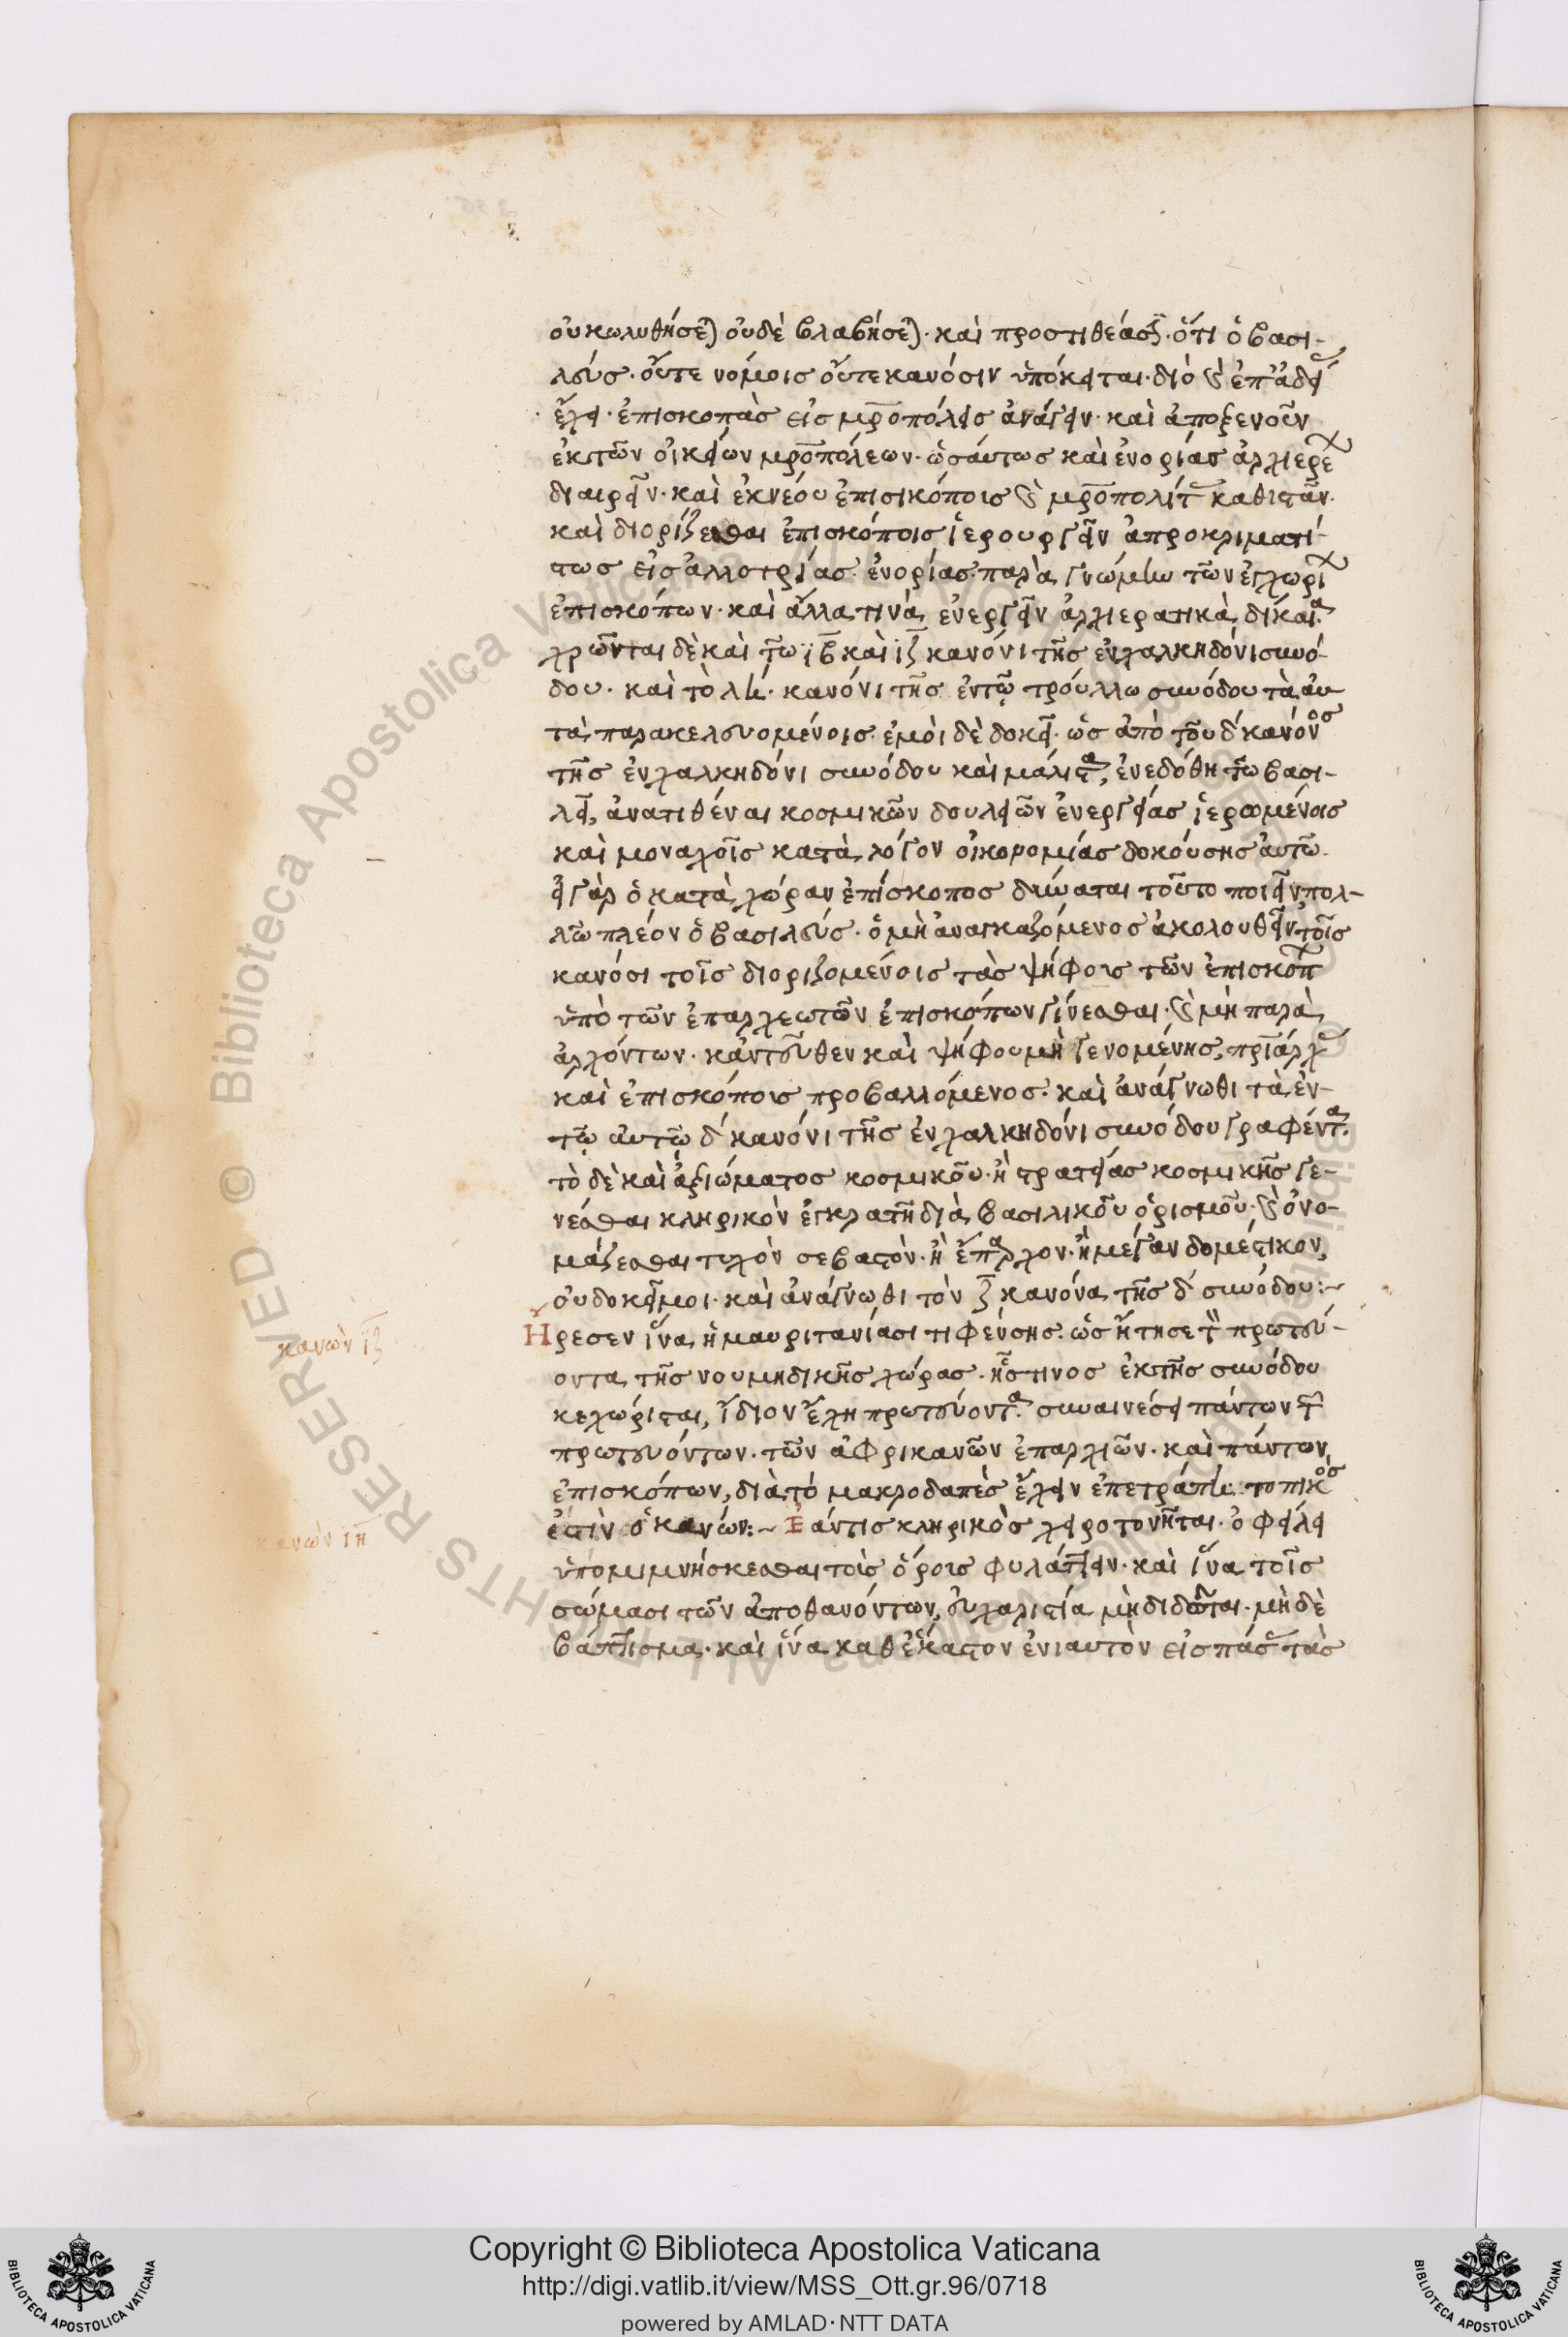 οὐ κωλυθήσεται οὐδὲ βλαβήσεται· καὶ προστιθέασιν· ὅτι ὁ βασι-
λεύς· οὔτε νόμοις οὔτε κανόσιν ὑπόκειται· διὸ καὶ ἐπ' ἀδείας
ἔχει· ἐπισκοπὰς εἰς μροπόλεις ἀνάγειν· καὶ ἀποξενοῦν
ἐκ τῶν οἰκείων μροπόλεων· ὡσαύτως καὶ ἐνορίας ἀρχιερέων
διαιρεῖν· καὶ ἐκ νέου ἐπισκόποις καὶ μροπολίτας καθιστᾶν·
καὶ διορίζεσθαι ἐπισκόποις ἱερουργεῖν ἀπροκριματί-
στως εἰς ἀλλοτρίας ἐνορίας παρὰ γνώμην τῶν ἐγχωρίων
ἐπισκόπων· καὶ ἄλλα τινὰ ἐνεργεῖν ἀρχιερατικὰ δίκαια·
χρῶνται δὲ καὶ τῶ ιβ καὶ ιζ κανόνι τῆς ἐν χαλκηδόνι συνό-
δου· καὶ τὸ λη· κανόνι τῆς ἐν τῷ τρούλλω συνόδου τὰ αὐ-
τὰ παρακελευομένοις· ἐμοὶ δὲ δοκεῖ· ὡς ἀπὸ τοῦ δ' κανόνος
τῆς ἐν χαλκηδόνι συνόδου καὶ μάλιστα, ἐνεδόθη τῶ βασι-
λεῖ, ἀνατιθέναι κοσμικῶν δουλειῶν ἐνεργείας ἱερωμένοις
καὶ μοναχοῖς κατὰ λόγον οἰκονομίας δοκούσης αὐτῶ·
εἰ γὰρ ὁ κατὰ χώραν ἐπίσκοπος δύναται τοῦτο ποιεῖν, πολ-
λῶ πλέον ὁ βασιλεύς· ὁ μὴ ἀναγκαζόμενος ἀκολουθεῖν τοῖς
κανόσι τοῖς διοριζομένοις τὰς ψήφους τῶν ἐπισκόπων
ὑπὸ τῶν ἐπαρχεωτῶν ἐπισκόπων γίνεσθαι· καὶ μὴ παρὰ
ἀρχόντων· κἀντεῦθεν καὶ ψήφου μὴ γενομένης, πριάρχας
καὶ ἐπισκόπους προβαλλόμενος· καὶ ἀνάγνωθι τὰ ἐν-
τῷ αὐτῷ δ' κανόνι τῆς ἐν χαλκηδόνι συνόδου γραφέντα·
τὸ δὲ καὶ ἀξιώματος κοσμικοῦ· ἢ στρατείας κοσμικῆς γε-
νέσθαι κληρικὸν ἐγκρατῆ διὰ βασιλικοῦ ὁρισμοῦ· καὶ ὀνο-
μάζεσθαι τυχὸν σεβαστὸν· ἢ ἔπαρχον· ἢ μέγαν δομέστικον,
οὐ δοκεῖ μοι· καὶ ἀνάγνωθι τὸν ζ κανόνα τῆς δ' συνόδου:~
κανὼν ιζ
Ἤρεσεν ἵνα ἡ μαυριτανίασι τιφένσης· ὡς ᾔτησε τὸν πρωτεύ-
οντα τῆς νουμηδικῆς χώρας· ἧστινος ἐκ τῆς συνόδου
κεχώρισται, ἴδιον ἔχη πρωτεύοντα· συναινέσει πάντων τῶν
πρωτευόντων· τῶν ἀφρικανῶν ἐπαρχιῶν· καὶ πάντων
ἐπισκόπων, διὰ τό μακροδαπὲς ἔχειν ἐπετράπη· τοπικός
κανὼν ιη
ἐστὶν ὁ κανών:~ Ἐάν τις κληρικὸς χειροτονῆται· ὀφείλει
ὑπομιμνήσκεσθαι τοὶς ὅροις φυλάττειν· καὶ ἵνα τοῖς
σώμασι τῶν ἀποθανόντων, εὐχαριστία μὴ διδῶται· μὴ δὲ
βάπτισμα· καὶ ἵνα καθ' ἕκαστον ἐνιαυτὸν εἰς πάσας τὰς
Copyright © Biblioteca Apostolica Vaticana
http://digi.vatlib.it/view/MSS_Ott.gr.96/0718
powered by AMLAD·NTT DATA